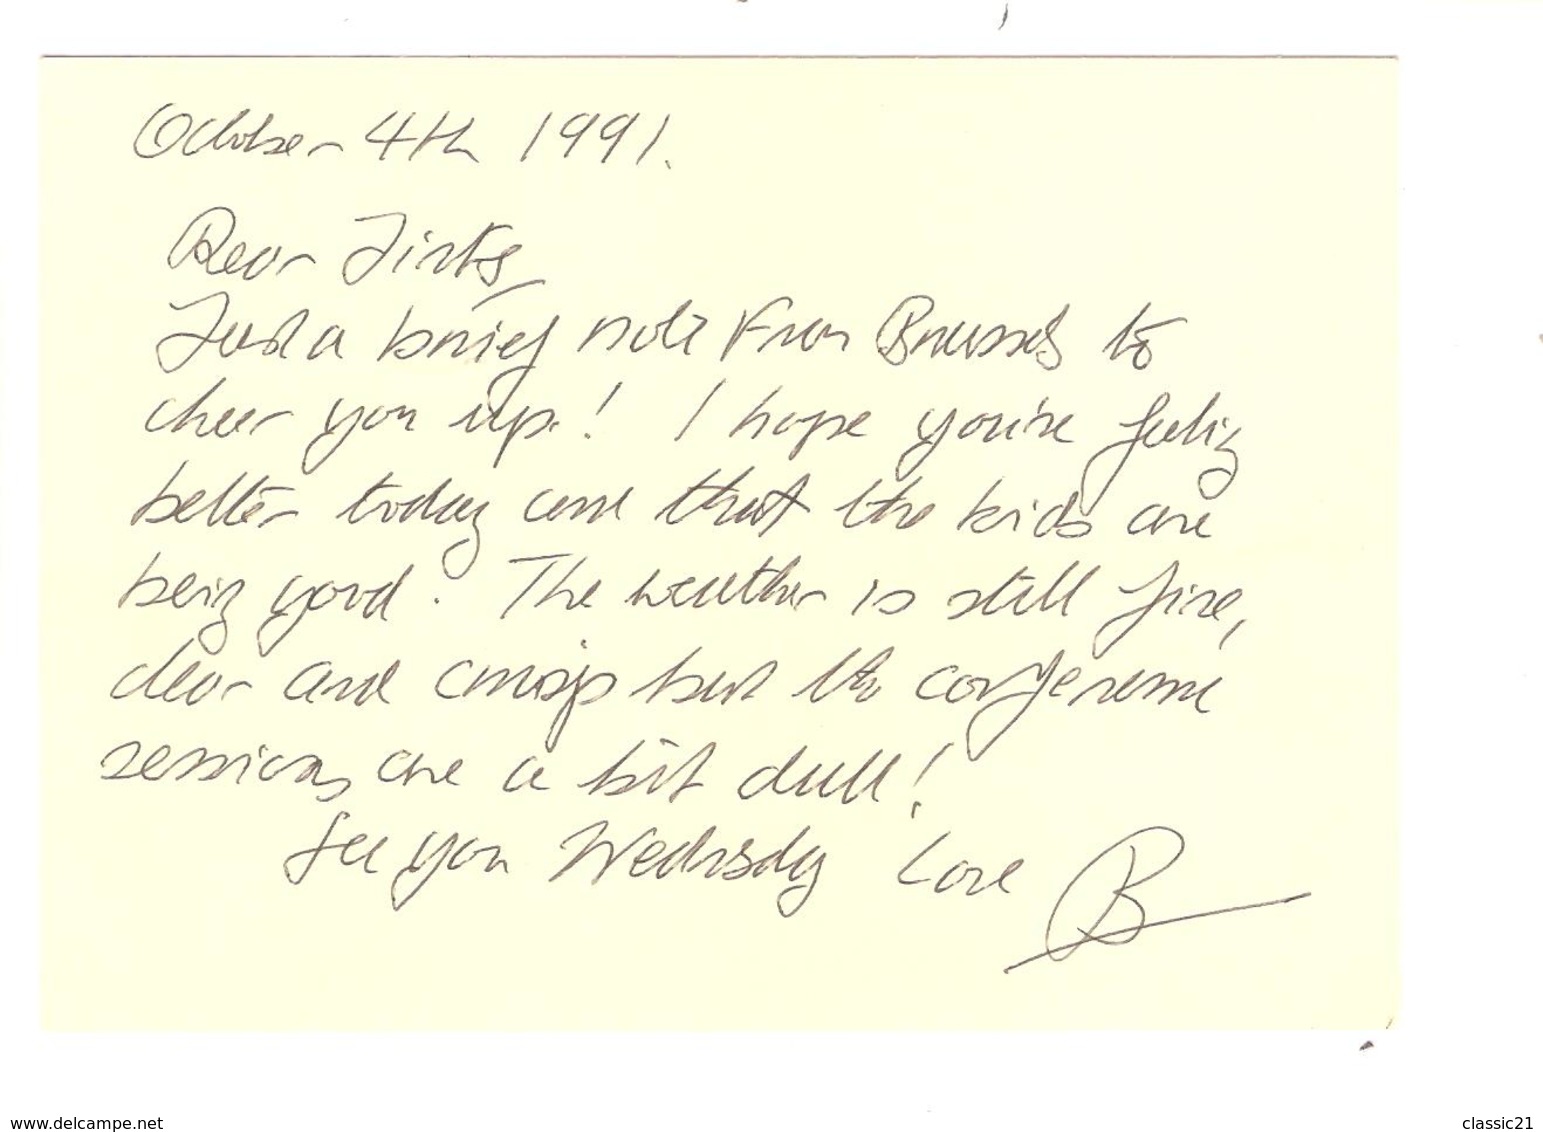 October 4th 1991.
Dear
Just a brief note from Brussels to
cheer you up! I hope you're feeling
better today and that the kids are
being good. The weather is still fine,
clear and crisp but the conference
sessions are a bit dull!
See you Wednesday Love B
www.delcampe.net
classic21